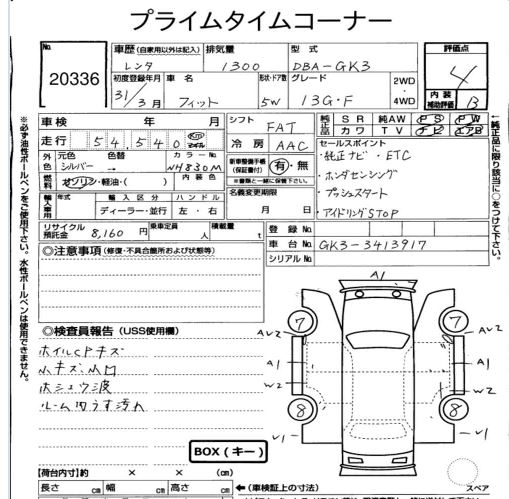 プライムタイムコーナー
No.
20336
車歴 (自家用以外は記入) 排気量 型式
レンタ 1300 DBA-GK3
初度登録年月 車名 形状・ドア数 グレード
31/3月 フィット 5W 13G・F 2WD・4WD
評価点
4
内装補助評価 B
車検 年 月
走行 54,540 km マイル
シフト FAT
冷房 AAC
純正品 SR 純AW PS PW
カワ TV ナビ エアB
外色 元色 色替 カラーNo.
シルバー → NH830M
燃料 ガソリン・軽油・( ) 内装色
新車整備手帳(保証書付) 有・無
※書類と一緒に保管下さい。
セールスポイント
・純正ナビ・ETC
・ホンダセンシング
・プッシュスタート
・アイドリングSTOP
輸入車用 年式 輸入区分 ハンドル
ディーラー・並行 左・右
名義変更期限
月 日
リサイクル預託金 8,160円 乗車定員 人 積載量 t
登録No.
車台No. GK3-3413917
シリアルNo.
◎注意事項 (修復・不具合箇所および状態等)
◎検査員報告 (USS使用欄)
ホイルCPキズ
小キズ小凹
ホシュウ波
ルーム内うす汚れ
A1
7 7
AV2 AV2
A1 A1
W2 W2
8 8
V1 V1
BOX (キー)
スペア
【荷台内寸】約 × × (cm)
長さ cm 幅 cm 高さ cm ←(車検証上の寸法)
※必ず油性ボールペンをご使用下さい。水性ボールペンは使用できません。
←純正品に限り該当に○をつけて下さい。